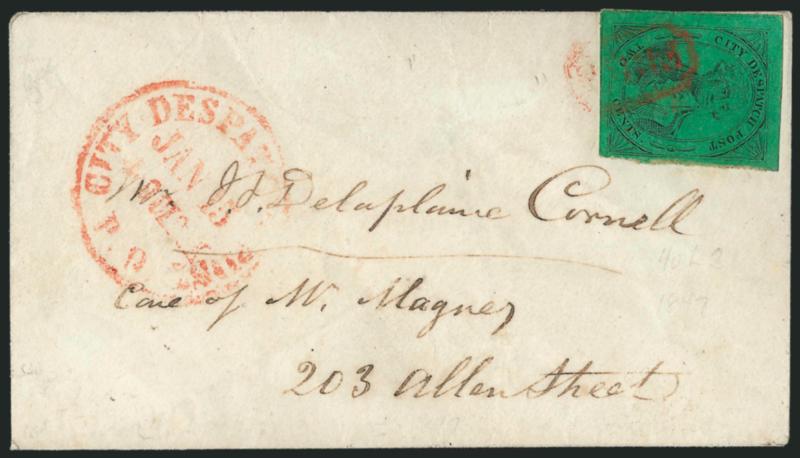 CITY DESPATCH POST
TWO CENTS
CITY DESPA
P.O.
JAN 13
Mr. J. Delaplaine Cornell
Care of Mr. Magney
203 Allen Street
40L2
1847